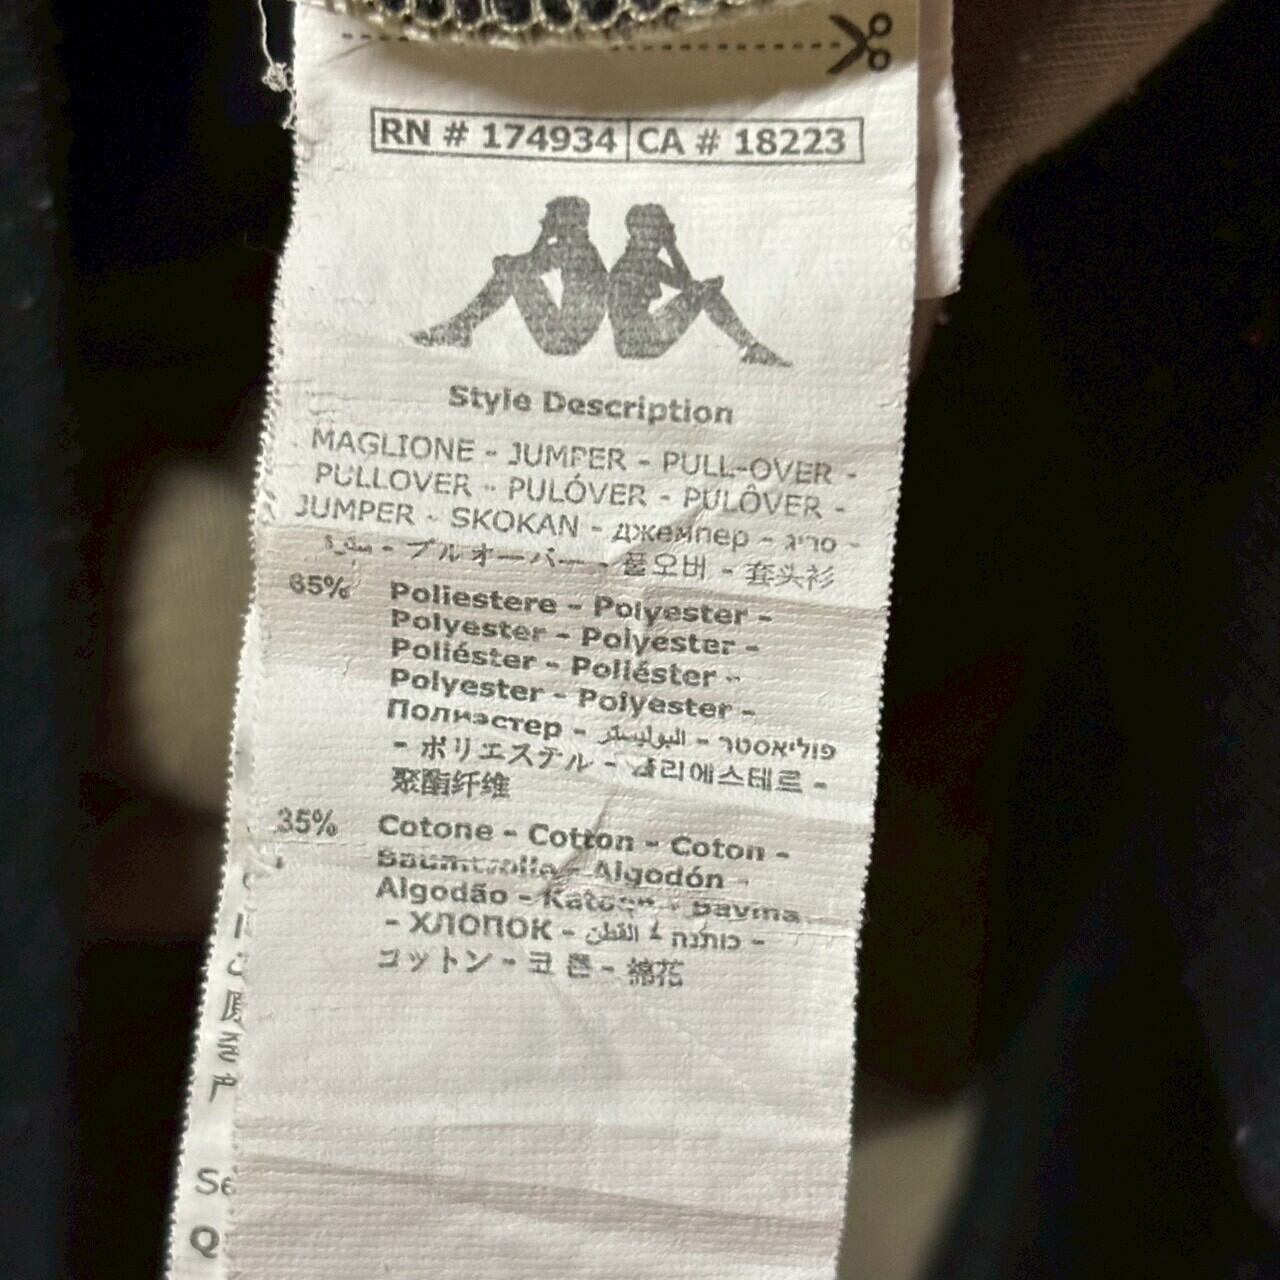 RN # 174934 CA # 18223
Style Description
MAGLIONE - JUMPER - PULL-OVER -
PULLOVER - PULÓVER - PULÔVER -
JUMPER - SKOKAN - джемпер - סריג -
プルオーバー - 풀오버 - 套头衫
65% Poliestere - Polyester -
Polyester - Polyester -
Poliéster - Poliéster -
Polyester - Polyester -
Полиэстер - البوليستر - פוליאסטר
- ポリエステル - 폴리에스테르 -
聚酯纤维
35% Cotone - Cotton - Coton -
Baumwolle - Algodón -
Algodão - Katoen - Bavlna
- ХЛОПОК - القطن - כותנה -
コットン - 코튼 - 綿花